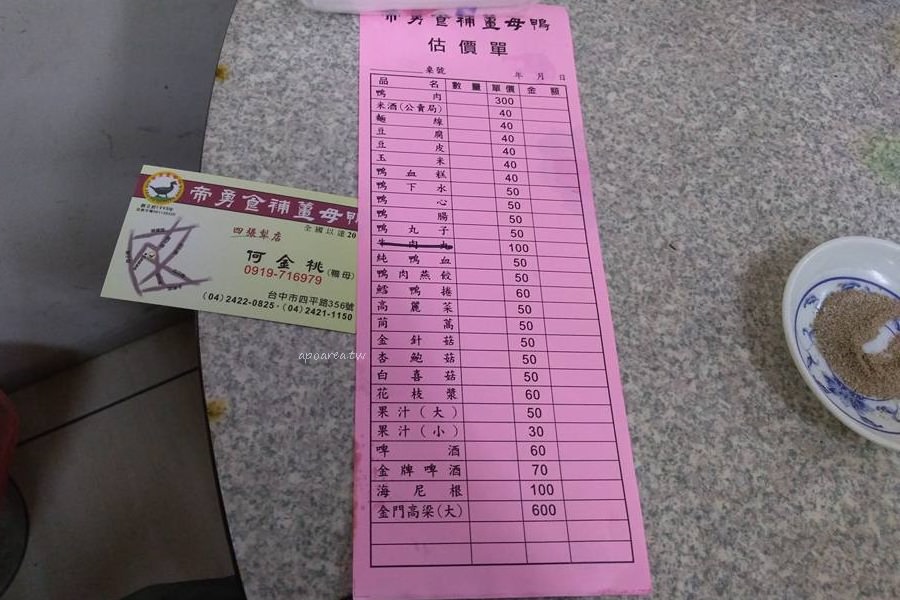 帝勇食補薑母鴨
估價單
桌號 年 月 日
品名 數量 單價 金額
鴨肉 300
米酒(公賣局) 40
麵線 40
豆腐 40
豆皮 40
玉米 40
鴨血糕 40
鴨下水 50
鴨心 50
鴨腸 50
鴨丸子 50
牛肉丸 100
純鴨血 50
鴨肉燕餃 50
鱈鴨捲 60
高麗菜 50
茼萵 50
金針菇 50
杏鮑菇 50
白喜菇 50
花枝漿 60
果汁(大) 50
果汁(小) 30
啤酒 60
金牌啤酒 70
海尼根 100
金門高梁(大) 600
帝勇食補薑母鴨
全國以達20
四張犁店
何金桃(鴨母)
0919-716979
台中市四平路356號
(04)2422-0825‧(04)2421-1150
apoarea.tw